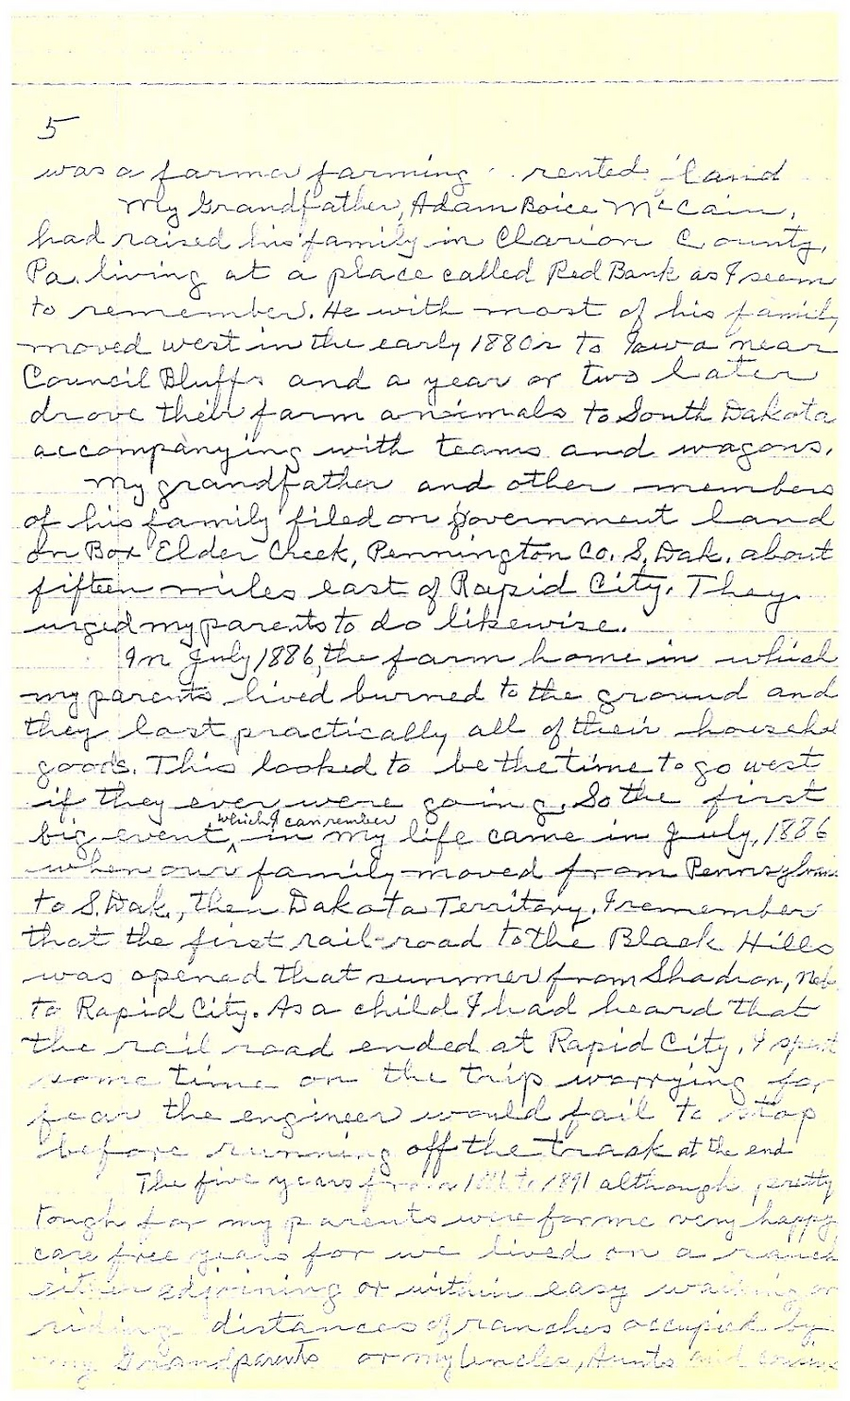 5
was a farmer farming rented land
My Grandfather, Adam Boice McCain,
had raised his family in Clarion County,
Pa. living at a place called Red Bank as I seem
to remember. He with most of his family
moved west in the early 1880s to Iowa near
Council Bluffs and a year or two later
drove their farm animals to South Dakota
accompanying with teams and wagons.
My grandfather and other members
of his family filed on government land
on Box Elder Creek, Pennington Co. S. Dak. about
fifteen miles east of Rapid City. They
urged my parents to do likewise.
In July 1886, the farm home in which
my parents lived burned to the ground and
they lost practically all of their househol
goods. This looked to be the time to go west
if they ever were going. So the first
big event, which I can remember in my life came in July, 1886
when our family moved from Pennsylvania
to S. Dak., then Dakota Territory. I remember
that the first rail-road to the Black Hills
was opened that summer from Shadron, Neb.
to Rapid City. As a child I had heard that
the rail road ended at Rapid City. I spent
some time on the trip worrying for
fear the engineer would fail to stop
before running off the track at the end
The five years from 1886 to 1891 although pretty
tough for my parents were for me very happy
care free years for we lived on a ranch
either adjoining or within easy walking or
riding distances of ranches occupied by
my Grandparents or my Uncles, Aunts and cousins